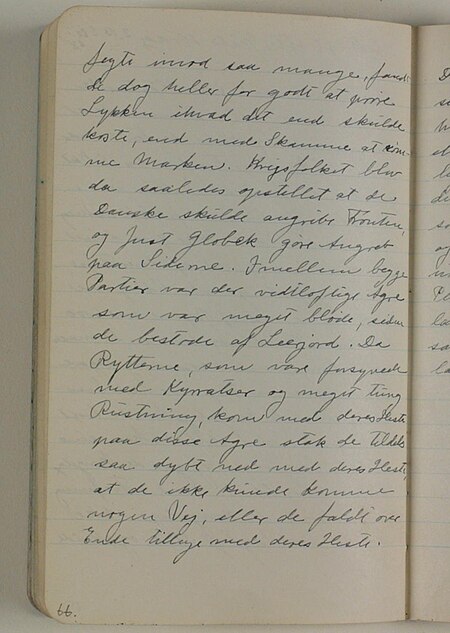 fegte imod saa mange, fandt
de dog heller for godt at prøve
Lykken ihvad det end skulde
koste, end med Skamme at röm-
me Marken. Krigsfolket blev
da saaledes opstillet at de
Danske skulde angribe Fronten,
og Just Globek göre Angreb
paa Siderne. Imellem begge
Partier var der vidtloftige Agre
som var meget bløde, siden
de bestode af Leerjord. Da
Rytterne, som vare forsynede
med Kyradser og meget tung
Rüstning, kom med deres Heste
paa disse Agre stak de tildels
saa dybt ned med deres Heste,
at de ikke kunde komme
nogen Vej, eller de faldt over
Ende tillige med deres Heste.
66.